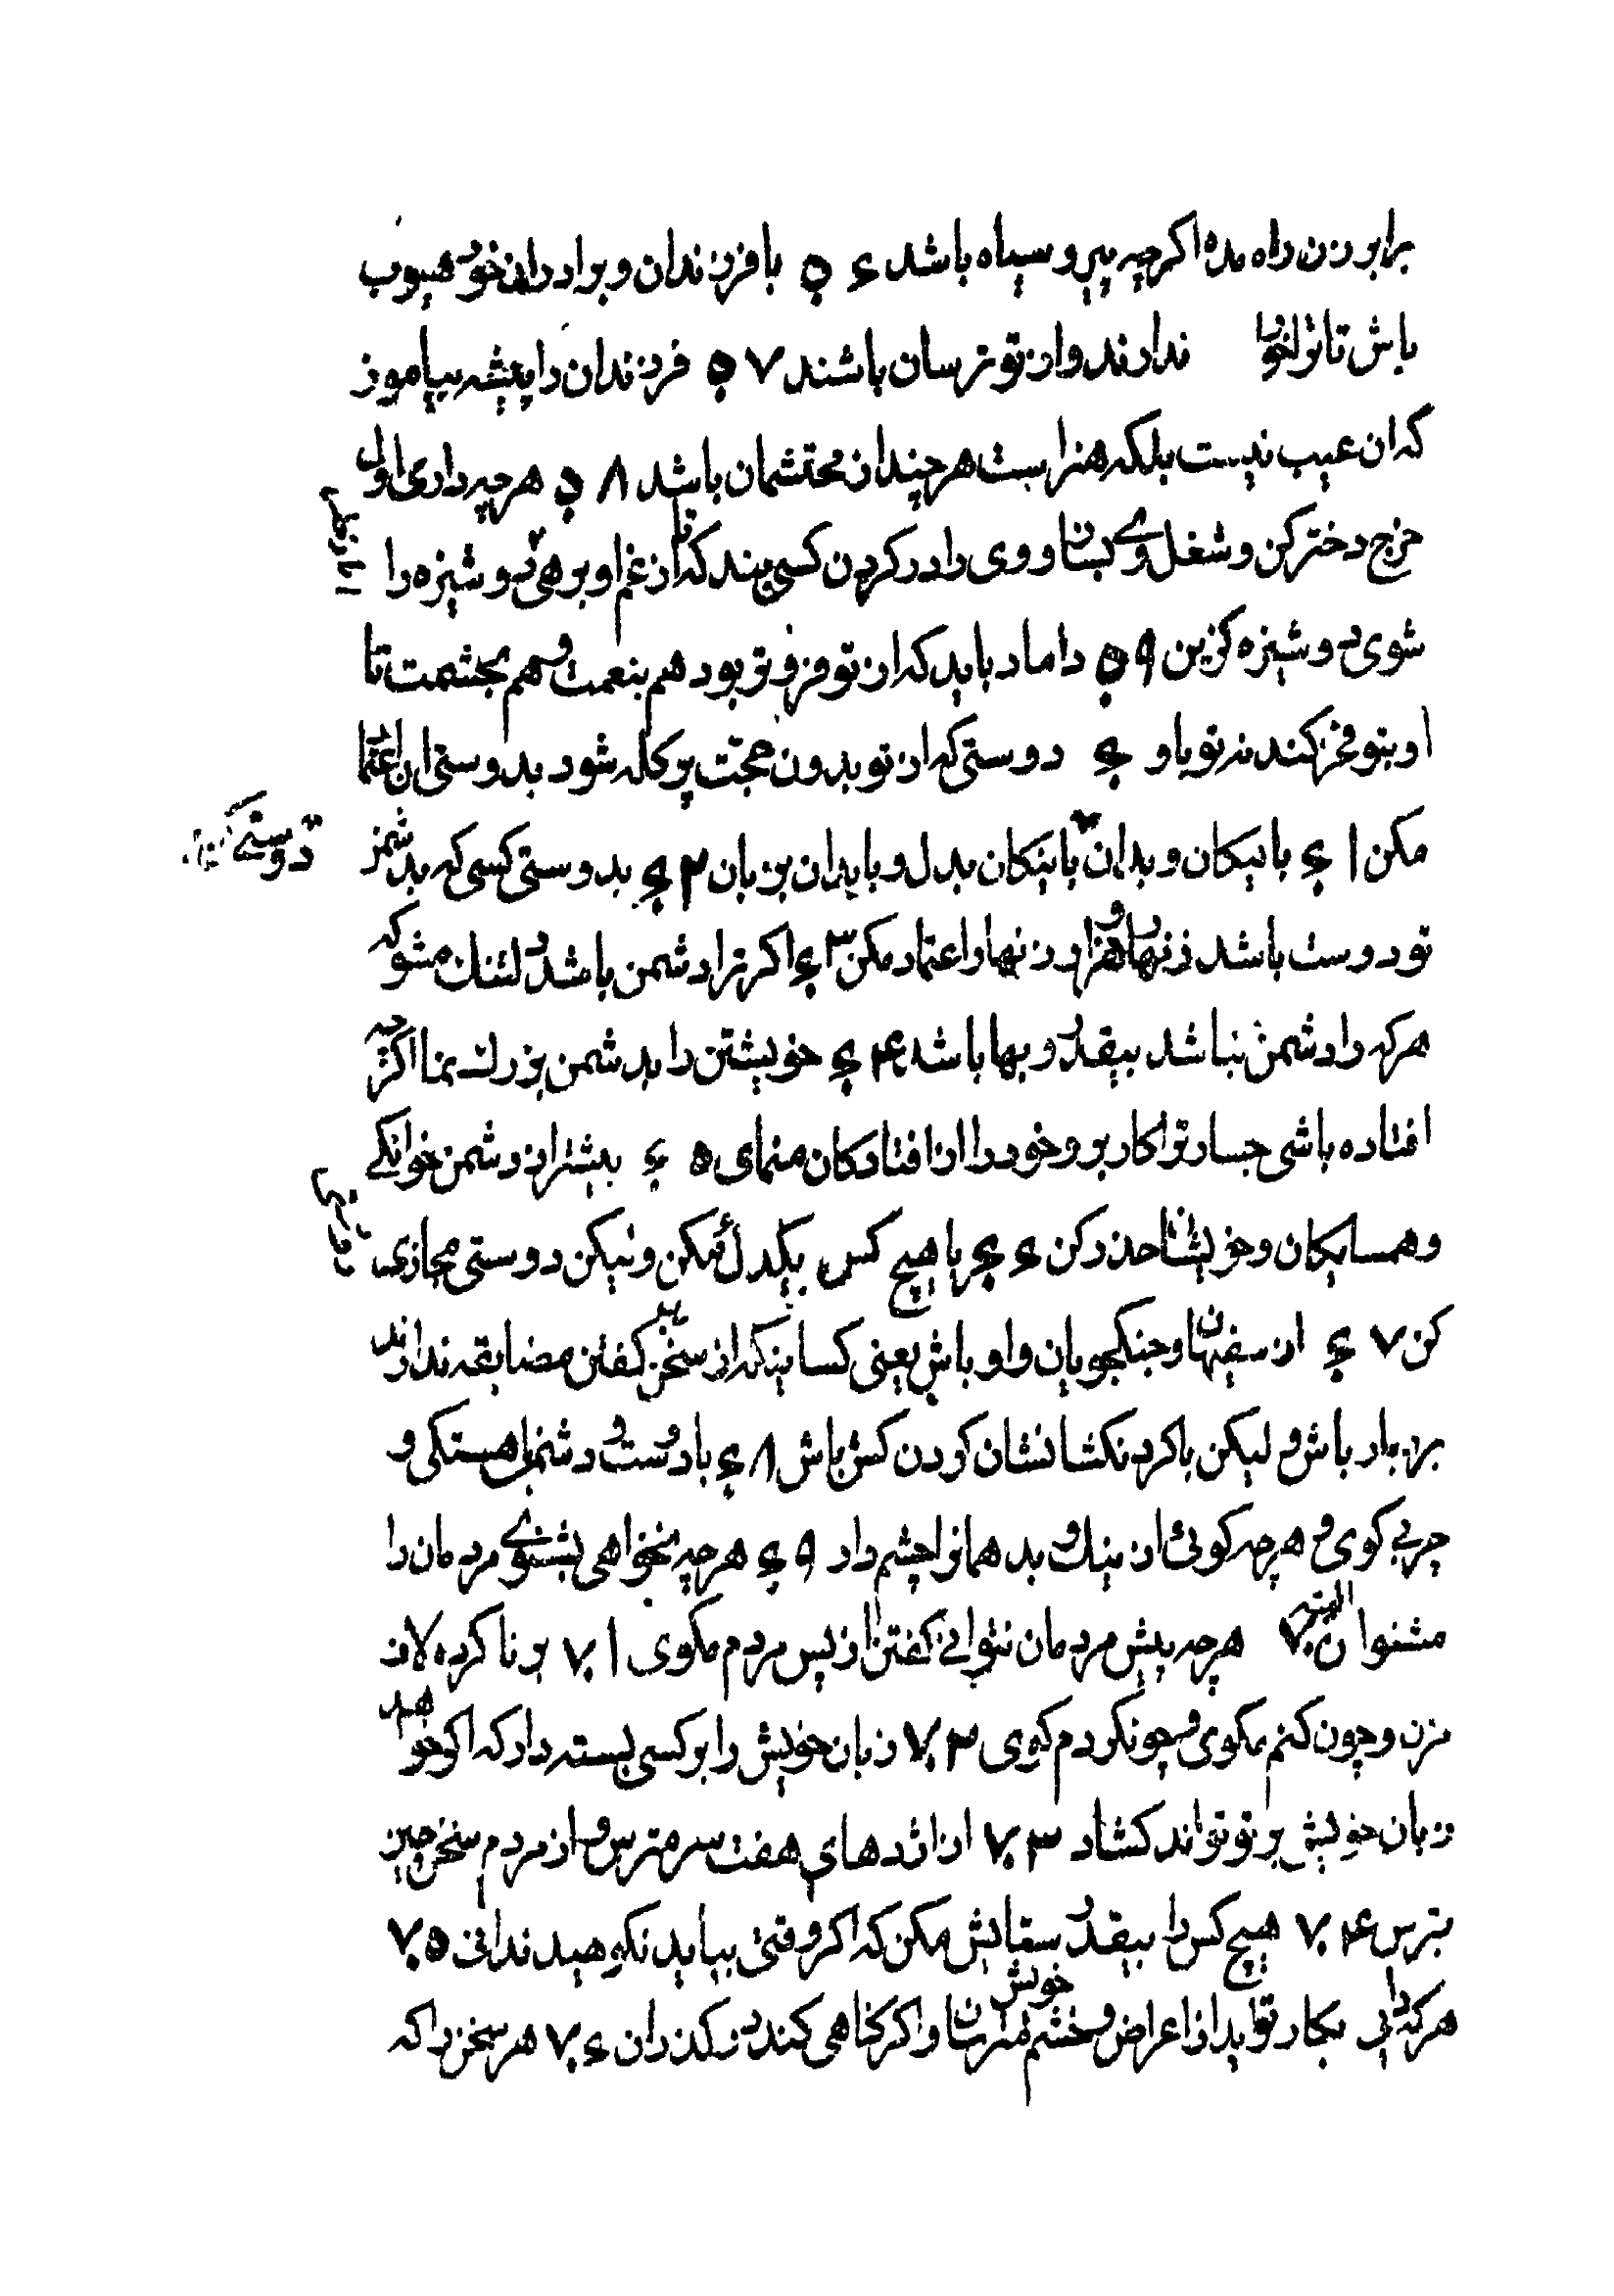 برابر زن راه مده اکرچه پیر و سیاه باشد ۵۶ با فرزندان و برادران خود هیوب
باش تا ترا خوار ندارند و از تو ترسان باشند ۵۷ فرزندان را پیشه بیاموز
که ان عیب نیست بلکه هنر است هر چند از محتشمان باشد ۵۸ هر چه داری اول
خرج دختر کن و شغل وی بساز و وی را در کردن کسی بند که از غم او برهی دوشیزه را
شوی دوشیزه کزین ۵۹ داماد باید که از تو فروتر بود هم بنعمت و هم بحشمت تا
او بتو فخر کند نه تو باو ۶۰ دوستی که از تو بدون حجت پر کله شود بدوستی ان اعتماد
مکن ۶۱ با نیکان و بدان با نیکان بدل و با بدان بزبان ۶۲ بدوستی کسی که بدشمن
تو دوست باشد زنهار و هزار زنهار اعتماد مکن ۶۳ اکر ترا دشمن باشد دلتنک مشو که
هر که را دشمن نباشد بیقدر و بها باشد ۶۴ خویشتن را بدشمن بزرک نما اکرچه
افتاده باشی جسارت را کار بر و خود را از افتادکان منمای ۶۵ بیشتر از دشمن خوانکی
و همسایکان و خویشان حذر کن ۶۶ با هیچ کس یکدل مکن ولیکن دوستی مجازی
کن ۶۷ از سفیهان و جنکجویان و اوباش یعنی کسانیکه از سخن بد کفتن مضایقه ندارند
بردبار باش و لیکن با کردنکشان کردن کش باش ۶۸ با دوست و دشمن باهستکی و
چربی کوی و هر چه کوئی از نیک و بد همانرا چشم دار ۶۹ هر چه نخواهی بشنوی مردمان را
مشنوان ۷۰ هر چه پیش مردمان نتوانی کفتن از پس مردم مکوی ۷۱ بر ناکرده لاف
مزن و چون کنم مکوی و چونکردم کوی ۷۲ زبان خویش را بر کسی بسته دار که اکر خواهد
زبان خویش بر تو تواند کشاد ۷۳ از اژدهای هفت سر مترس و از مردم سخن چین
بترس ۷۴ هیچ کس را بیقدر ستایش مکن که اکر وقتی بباید نکوهید ندانی ۷۵
هر کرا بی بکار تو اید از اعراض و خشم خویش مترسان و اکر کناهی کند در کذران ۷۶ هر سخن را که